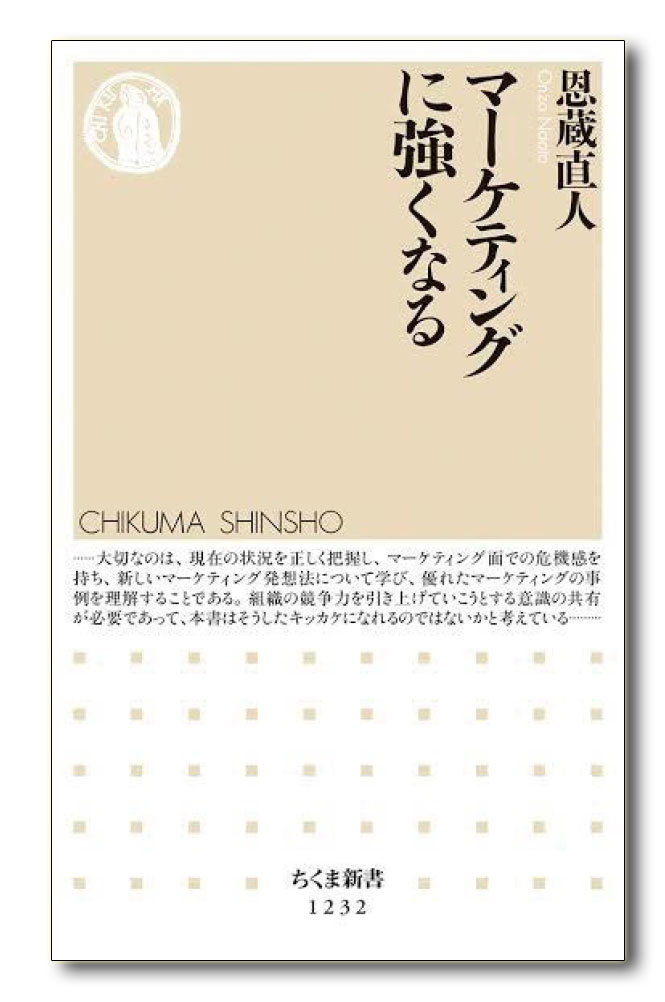 恩蔵直人
Onzo Naoto
マーケティング
に強くなる
CHIKUMA SHINSHO
……大切なのは、現在の状況を正しく把握し、マーケティング面での危機感を
持ち、新しいマーケティング発想法について学び、優れたマーケティングの事
例を理解することである。組織の競争力を引き上げていこうとする意識の共有
が必要であって、本書はそうしたキッカケになれるのではないかと考えている………
ちくま新書
1232